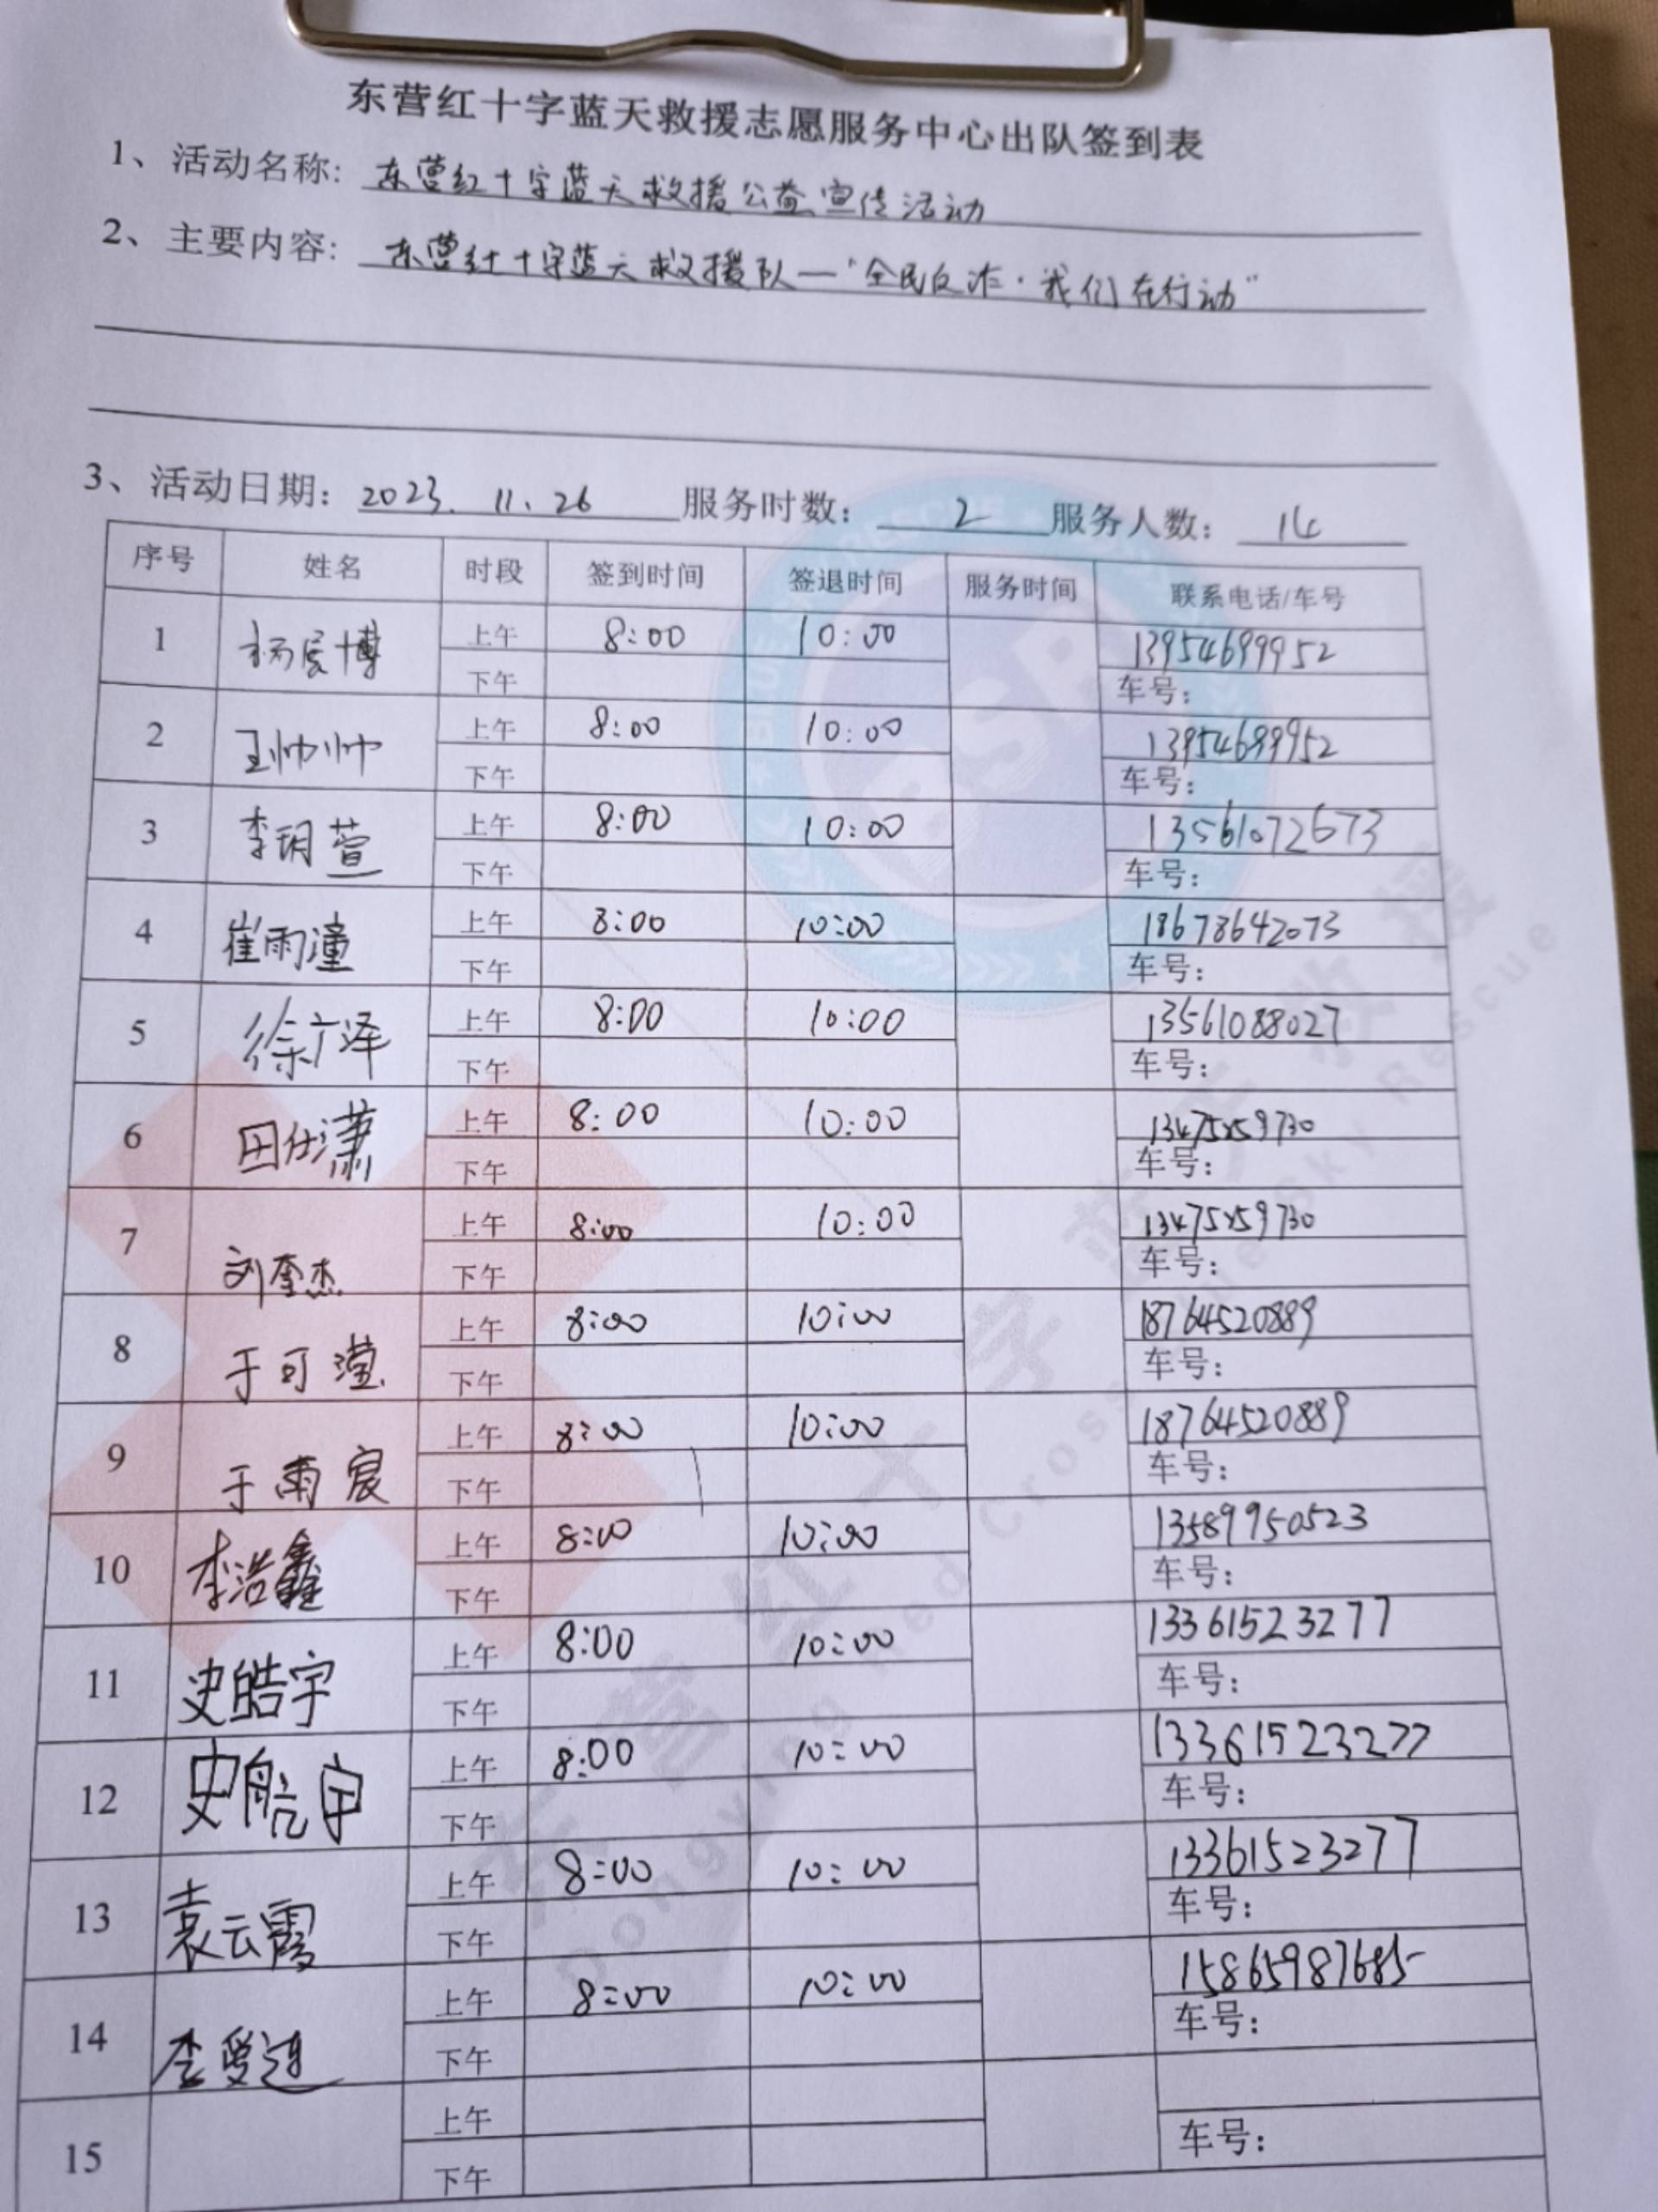 东营红十字蓝天救援志愿服务中心出队签到表
1、活动名称: 东营红十字蓝天救援公益宣传活动
2、主要内容: 东营红十字蓝天救援队—"全民反诈·我们在行动"
3、活动日期: 2023.11.26 服务时数: 2 服务人数: 14
序号 姓名 时段 签到时间 签退时间 服务时间 联系电话/车号
1 杨展博 上午 8:00 10:00 13954699952
下午 车号:
2 王帅帅 上午 8:00 10:00 13954699952
下午 车号:
3 李玥萱 上午 8:00 10:00 13561072673
下午 车号:
4 崔雨潼 上午 8:00 10:00 18678642073
下午 车号:
5 徐广泽 上午 8:00 10:00 13561088027
下午 车号:
6 田仕潇 上午 8:00 10:00
下午 车号:
7 刘奎杰 上午 8:00 10:00
下午 车号:
8 于可滢 上午 8:00 10:00 18764520889
下午 车号:
9 于雨宸 上午 8:00 10:00 18764520889
下午 车号:
10 李浩鑫 上午 8:00 10:00 13589950523
下午 车号:
11 史皓宇 上午 8:00 10:00 13361523277
下午 车号:
12 史航宇 上午 8:00 10:00 13361523277
下午 车号:
13 袁云霞 上午 8:00 10:00 13361523277
下午 车号:
14 李爱连 上午 8:00 10:00 15865987685
下午 车号:
15 上午
下午 车号:
东营红十字蓝天救援
Dongying Red Cross Blue Sky Rescue